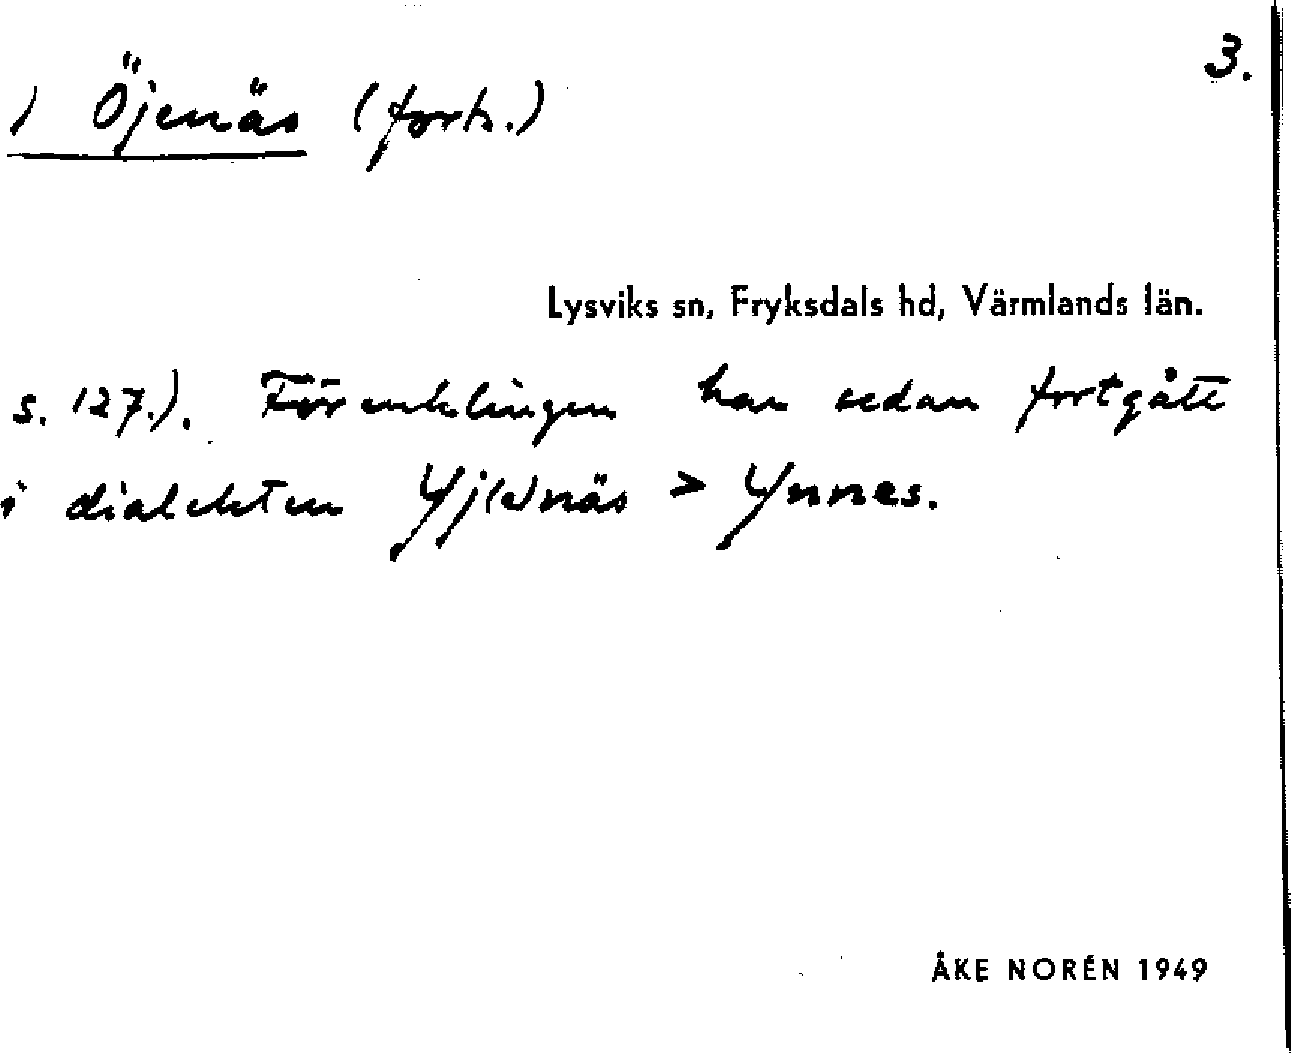 3.
) Öjenäs (forts.)
Lysviks sn, Fryksdals hd, Värmlands län.
s. 127.). Förenklingen har sedan fortgått
i dialekten Yj(e)näs > Ynnes.
ÅKE NORÉN 1949